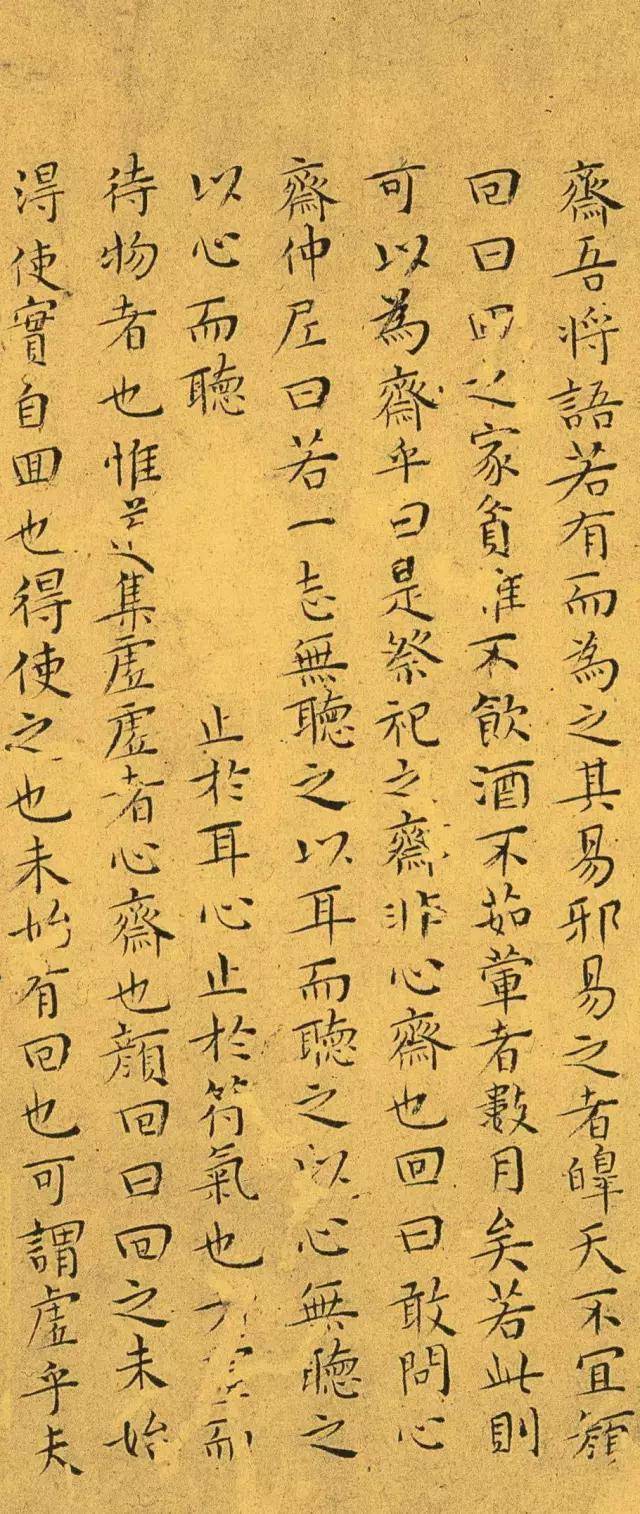 齋吾將語若有而為之其易邪易之者皞天不宜顏
回曰回之家貧唯不飲酒不茹葷者數月矣若此則
可以為齋乎曰是祭祀之齋非心齋也回曰敢問心
齋仲尼曰若一志無聽之以耳而聽之以心無聽之
以心而聽 止於耳心止於符氣也 而
待物者也惟道集虛虛者心齋也顏回曰回之未始
得使實自回也得使之也未始有回也可謂虛乎夫